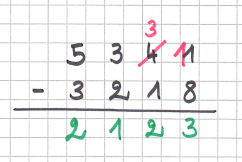 3
5 3 4 11
- 3 2 1 8
2 1 2 3